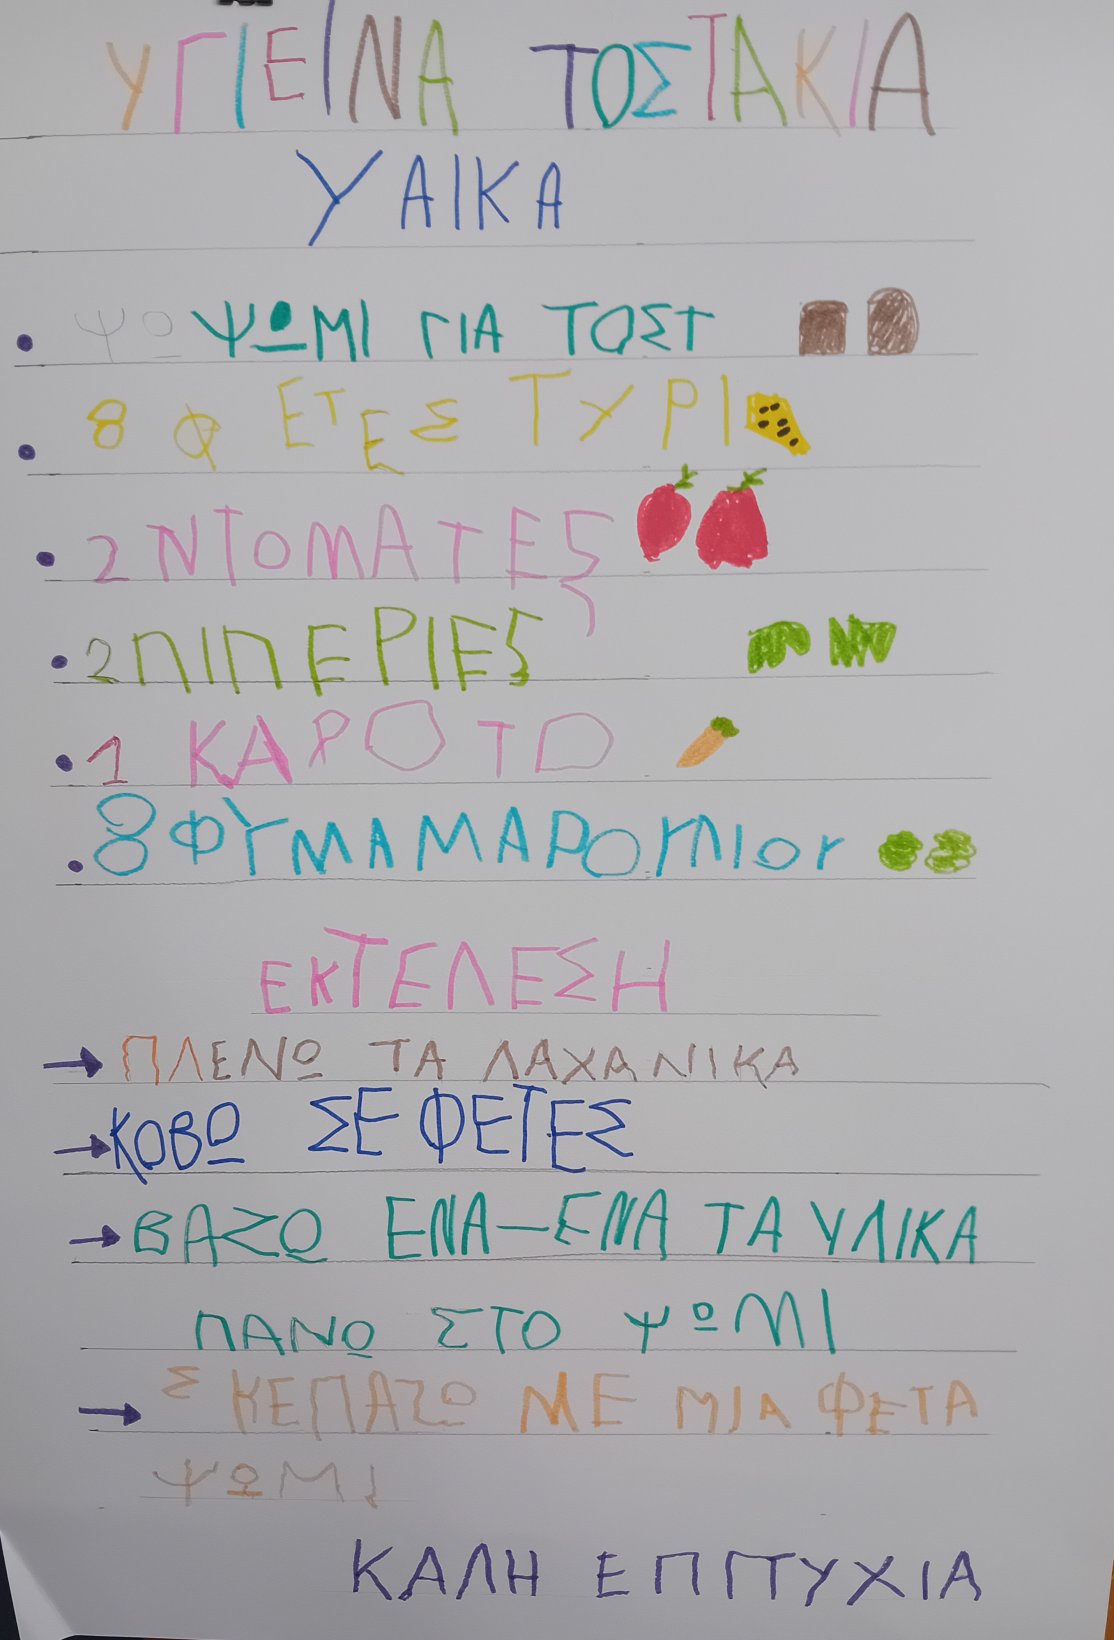 ΥΓΙΕΙΝΑ ΤΟΣΤΑΚΙΑ
ΥΑΙΚΑ
• ΨΩ ΨΩΜΙ ΓΙΑ ΤΟΣΤ
• 8 ΦΕΤΕΣ ΤΥΡΙ
• 2 ΝΤΟΜΑΤΕΣ
• 2 ΠΙΠΕΡΙΕΣ
• 1 ΚΑΡΟΤΟ
• 8 ΦΥΜΑ ΜΑΡΟΥΛΙΟΥ
ΕΚΤΕΛΕΣΗ
→ ΠΛΕΝΩ ΤΑ ΛΑΧΑΝΙΚΑ
→ ΚΟΒΩ ΣΕ ΦΕΤΕΣ
→ ΒΑΖΩ ΕΝΑ-ΕΝΑ ΤΑ ΥΛΙΚΑ
ΠΑΝΩ ΣΤΟ ΨΩΜΙ
→ ΣΚΕΠΑΖΩ ΜΕ ΜΙΑ ΦΕΤΑ
ΨΩΜΙ
ΚΑΛΗ ΕΠΙΤΥΧΙΑ